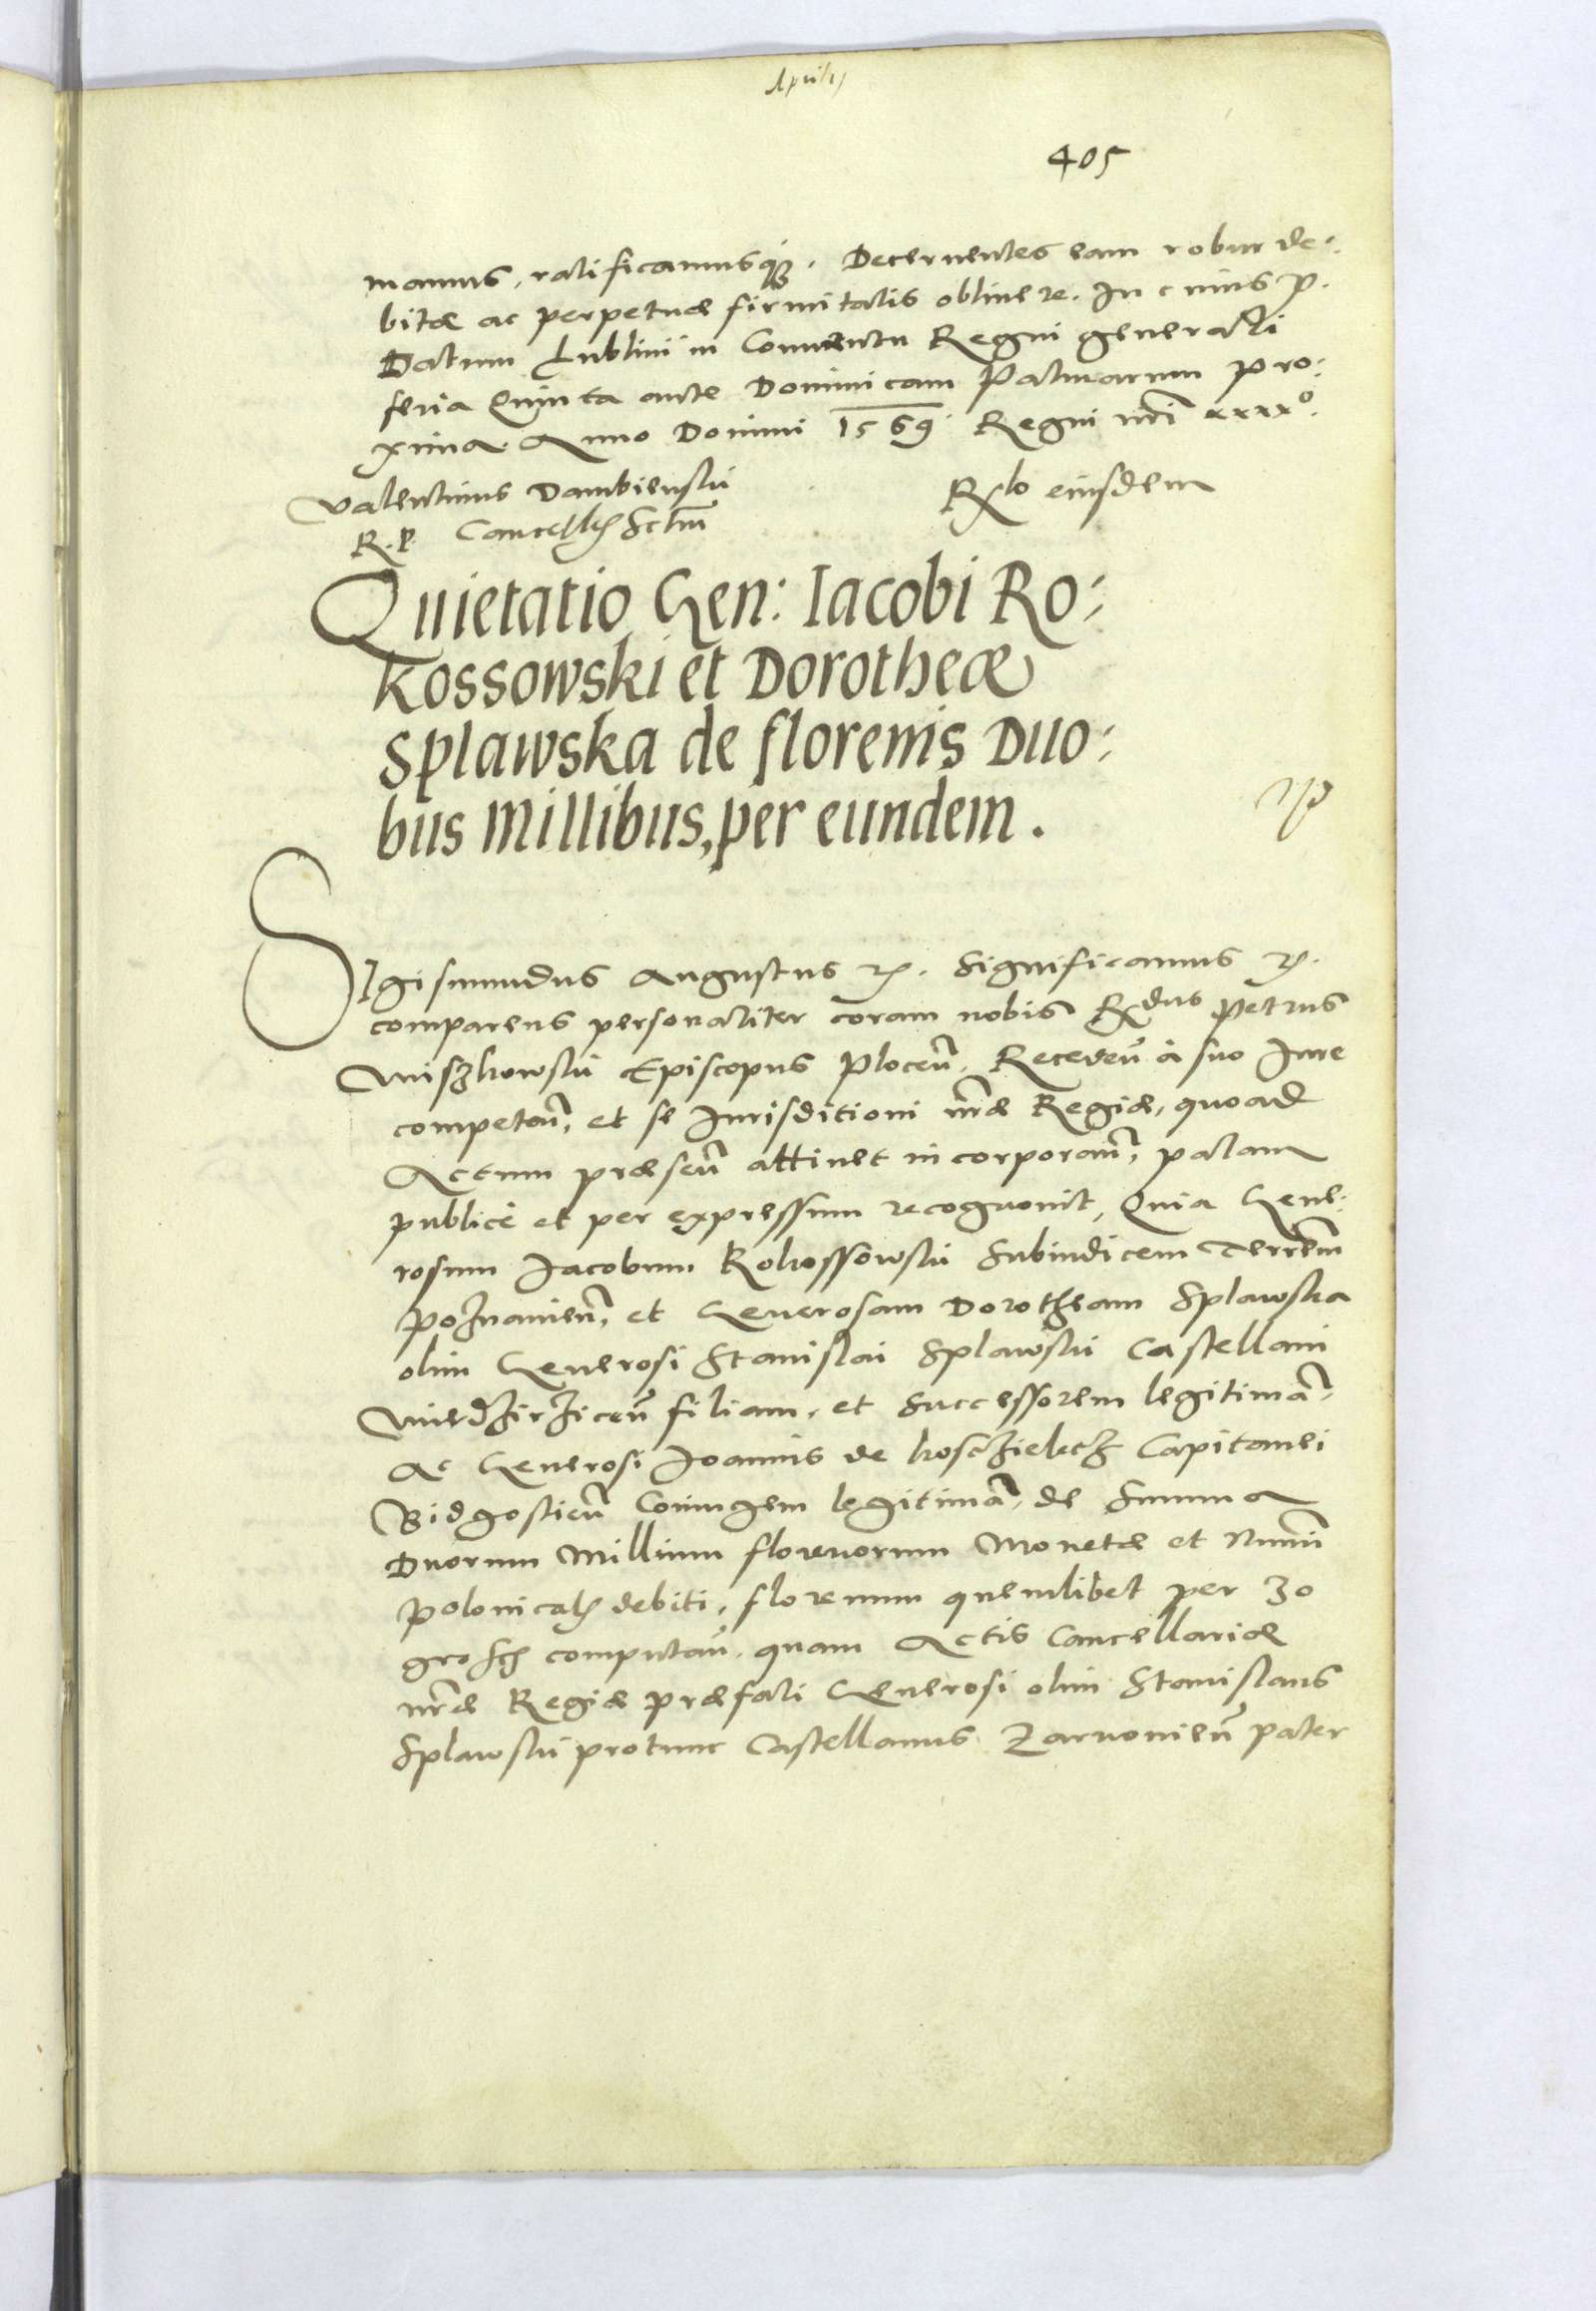 Aprilis
405
mamus, ratificamusq3. Decernentes eam robur de:
bitæ ac perpetuæ firmitatis obtinere. In cuius p.
Datum Lublini in Conventu Regni generali
feria Quinta ante Dominicam Palmarum pro:
xima. Anno Domini 1569. Regni nri xxxx°.
Valentinus Dambienski
R. P. Cancellr̃ Sctm̃
Rlo eiusdem
Quietatio Gen: Iacobi Ro:
kossowski et Dorotheæ
Splawska de florenis Duo:
bus Millibus, per eundem.
Sigismundus Augustus rc. Significamus rc.
comparens personaliter coram nobis Rdus Petrus
Miszkowski Episcopus Plocen̄. Receden̄ à suo Iure
competen̄, et se Iurisditioni nræ Regiæ, quoad
Actum præsen̄ attinet incorporan̄, palam
publicè et per expressum recognovit, Quia Gene:
rosum Jacobum Rokossowski Subiudicem Terrem̄
Poznanien̄, et Generosam Dorotheam Splawska
olim Generosi Stanislai Splawski Castellani
Miedzirzicen̄ filiam, et Successorem legitimā,
Ac Generosi Joannis de Kosczielecz Capitanei
Bidgostien̄ Coniugem legitimā, de Summa
Duorum Millium florenorum Monetæ et Num̄i
Polonicalr̃ debiti, florenum quemlibet per 30
grosſr̃ computan̄. quam Actis Cancellariæ
nræ Regiæ præfati Generosi olim Stanislaus
Splawski protunc Castellanus Zarnonien̄ pater